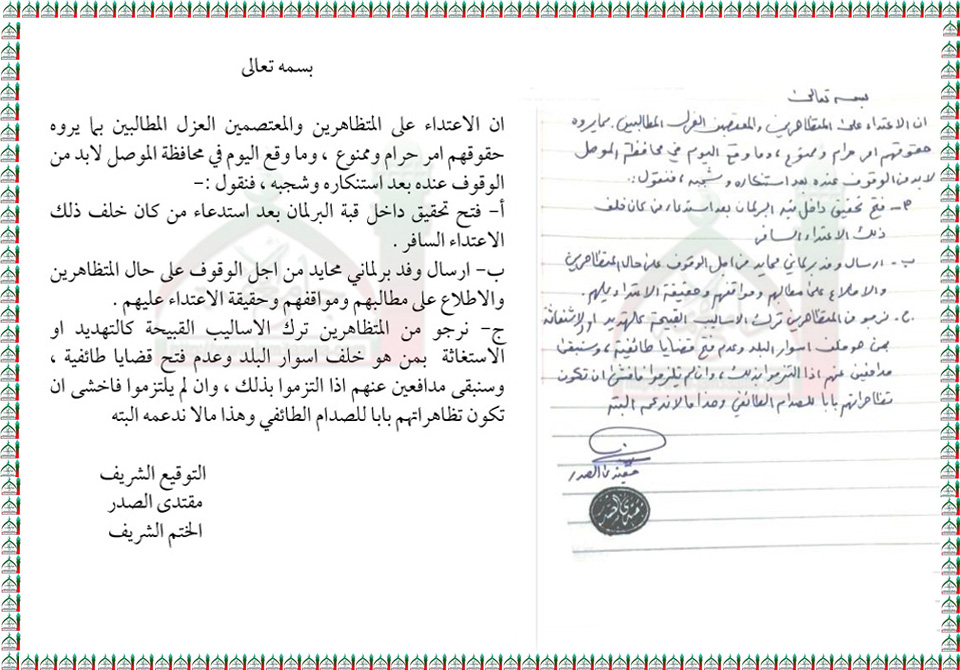 بسمه تعالى
ان الاعتداء على المتظاهرين والمعتصمين العزل المطالبين بما يروه
حقوقهم امر حرام وممنوع ، وما وقع اليوم في محافظة الموصل لابد من
الوقوف عنده بعد استنكاره وشجبه ، فنقول :-
أ- فتح تحقيق داخل قبة البرلمان بعد استدعاء من كان خلف ذلك
الاعتداء السافر .
ب- ارسال وفد برلماني محايد من اجل الوقوف على حال المتظاهرين
والاطلاع على مطالبهم ومواقفهم وحقيقة الاعتداء عليهم .
ج- نرجو من المتظاهرين ترك الاساليب القبيحة كالتهديد او
الاستغاثة بمن هو خلف اسوار البلد وعدم فتح قضايا طائفية ،
وسنبقى مدافعين عنهم اذا التزموا بذلك ، وان لم يلتزموا فاخشى ان
تكون تظاهراتهم بابا للصدام الطائفي وهذا مالا ندعمه البته
التوقيع الشريف
مقتدى الصدر
الختم الشريف
بسمه تعالى
ان الاعتداء على المتظاهرين والمعتصمين العزل المطالبين بما يروه
حقوقهم امر حرام وممنوع ، وما وقع اليوم في محافظة الموصل
لابد من الوقوف عنده بعد استنكاره وشجبه ، فنقول :
أ- فتح تحقيق داخل قبة البرلمان بعد استدعاء من كان خلف
ذلك الاعتداء السافر
ب- ارسال وفد برلماني محايد من اجل الوقوف على حال المتظاهرين
والاطلاع على مطالبهم ومواقفهم وحقيقة الاعتداء عليهم .
ج- نرجو من المتظاهرين ترك الاساليب القبيحة كالتهديد او الاستغاثة
بمن هو خلف اسوار البلد وعدم فتح قضايا طائفية ، وسنبقى
مدافعين عنهم اذا التزموا بذلك ، وان لم يلتزموا فاخشى ان تكون
تظاهراتهم بابا للصدام الطائفي وهذا مالا ندعمه البته
مقتدى الصدر